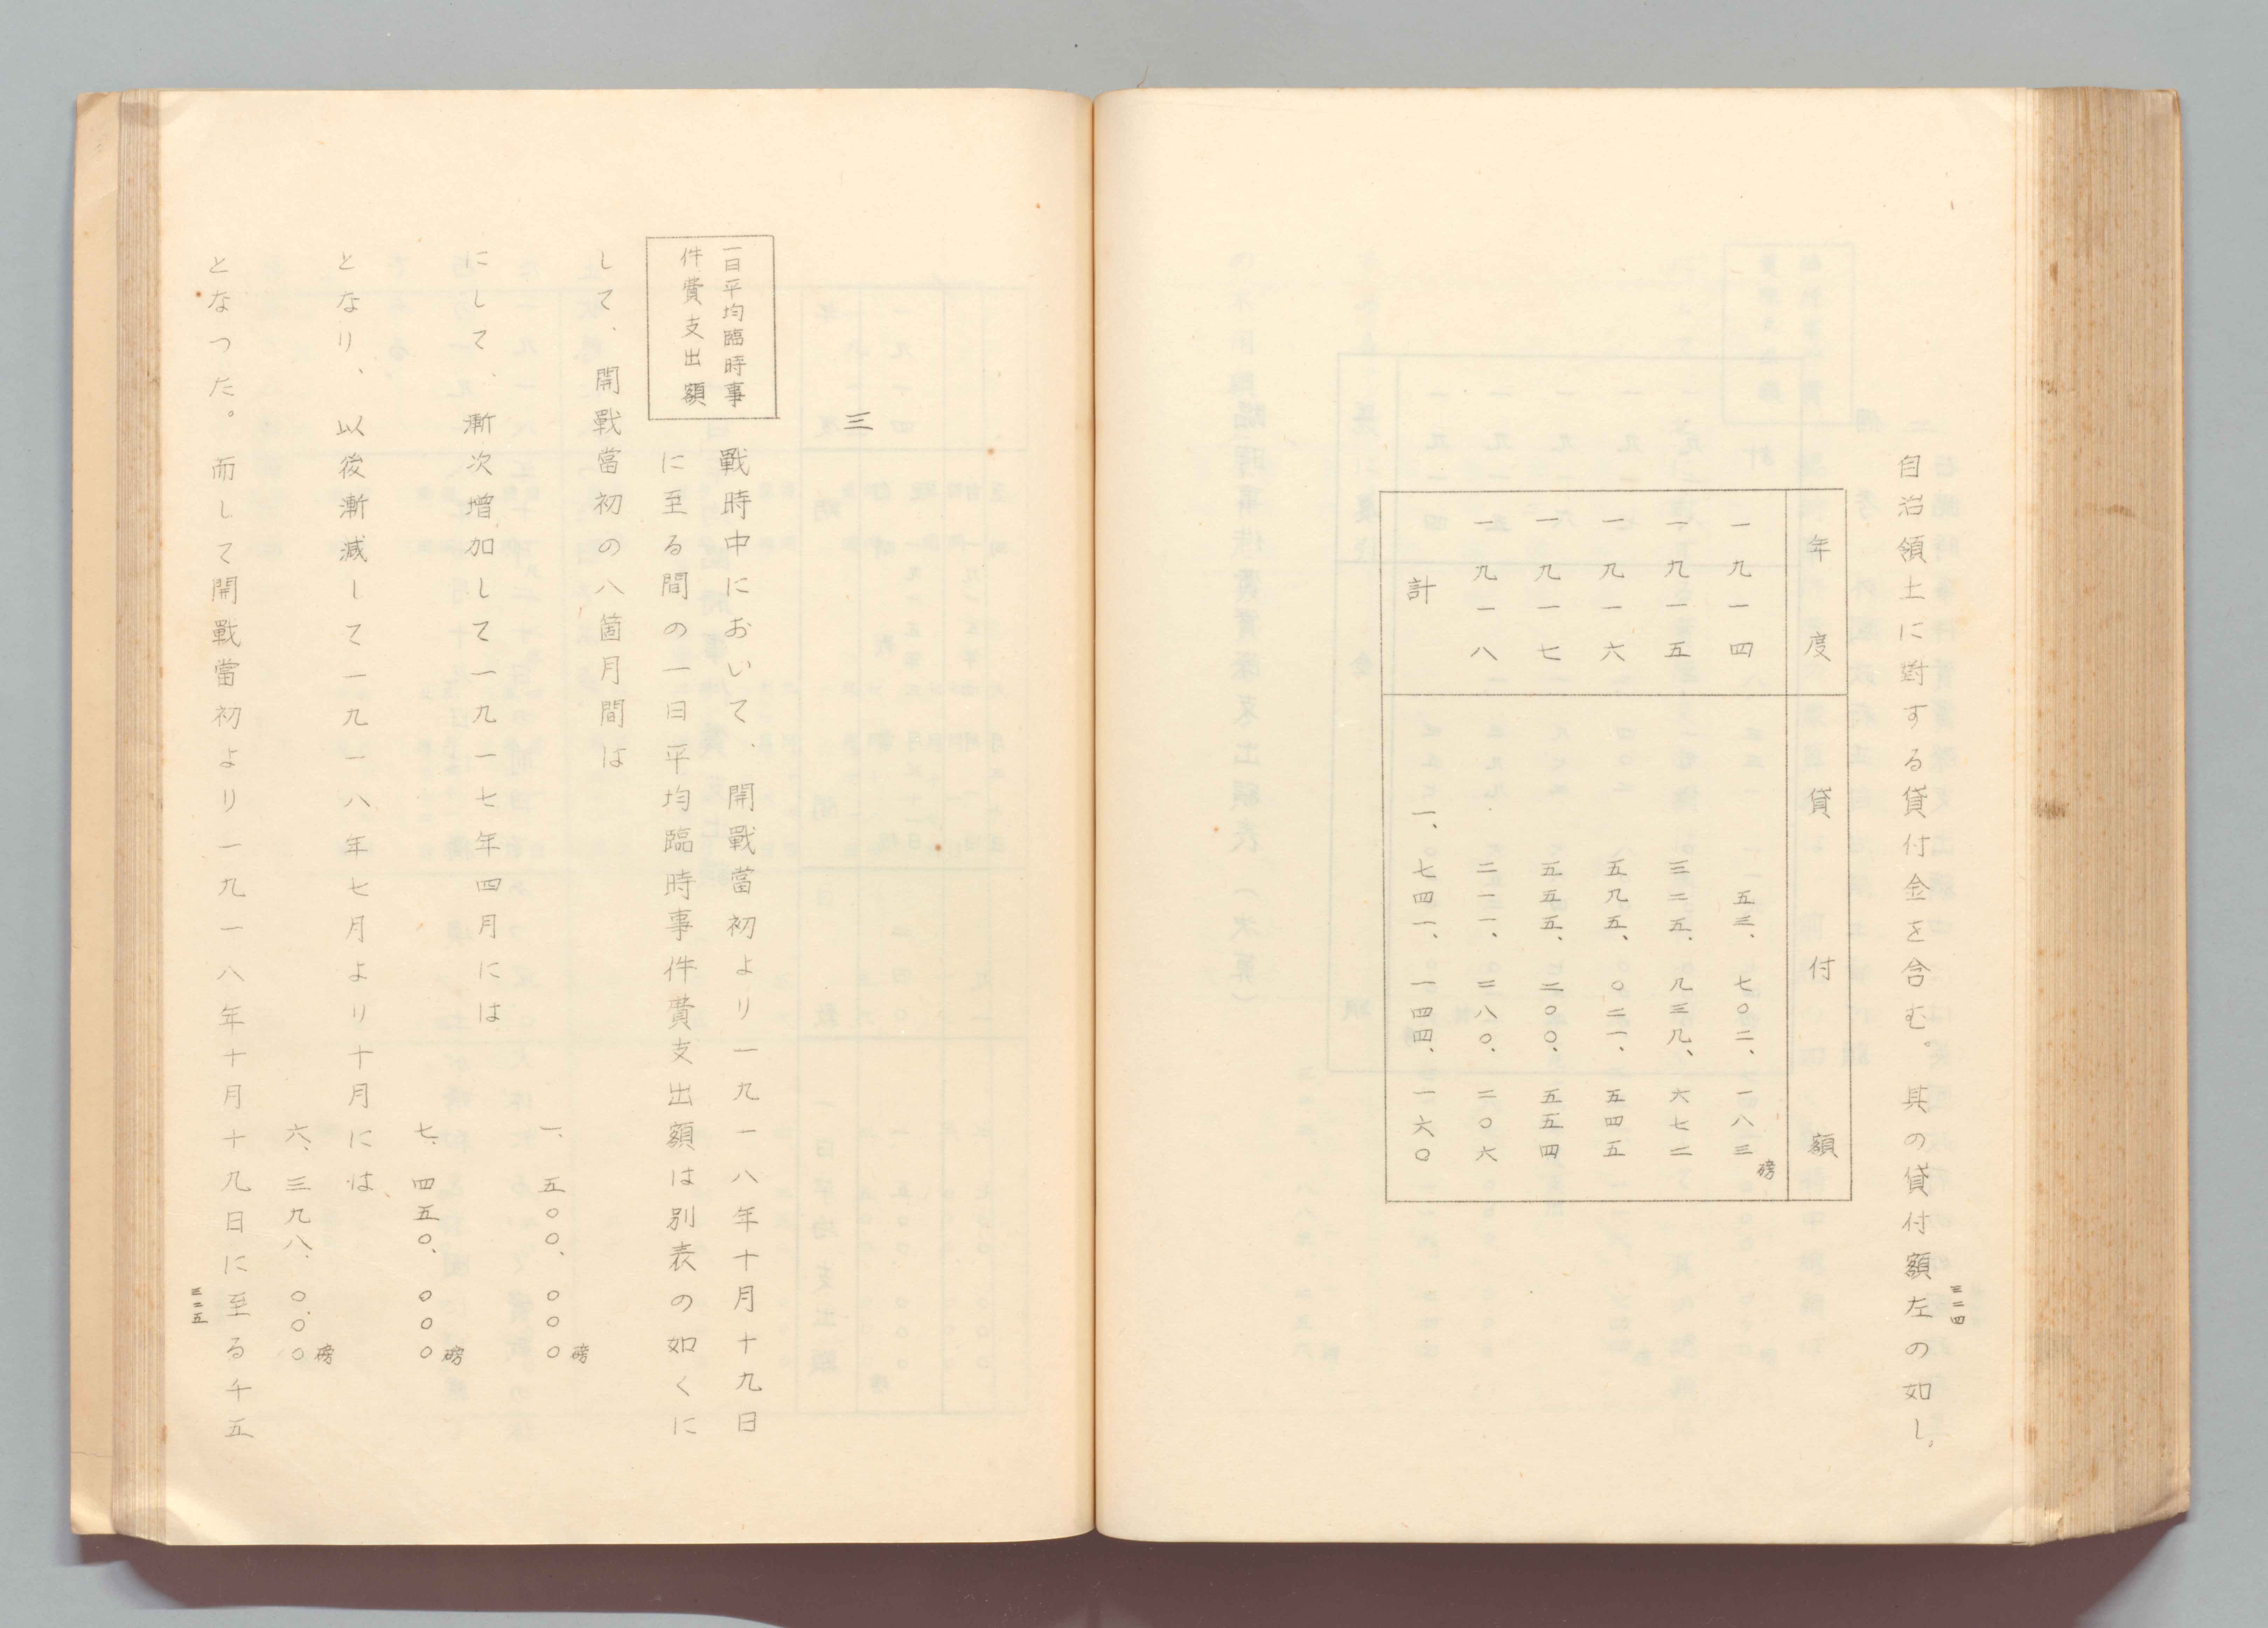 三二四
自治領土に對する貸付金を含む。其の貸付額左の如し、
年度 貸付額
一九一四 五三、七〇二、一八三磅
一九一五 三二五、九三九、六七二
一九一六 五九五、〇二一、五四五
一九一七 五五五、二〇〇、五五四
一九一八 二一一、二八〇、二〇六
計 一、七四一、一四四、一六〇
三
一日平均臨時事
件費支出額
戰時中において、開戰當初より一九一八年十月十九日
に至る間の一日平均臨時事件費支出額は別表の如くに
して、開戰當初の八箇月間は
一、五〇〇、〇〇〇磅
にして、漸次增加して一九一七年四月には
七、四五〇、〇〇〇磅
となり、以後漸減して一九一八年七月より十月には
六、三九八、〇〇〇磅
となつた。而して開戰當初より一九一八年十月十九日に至る千五
三二五